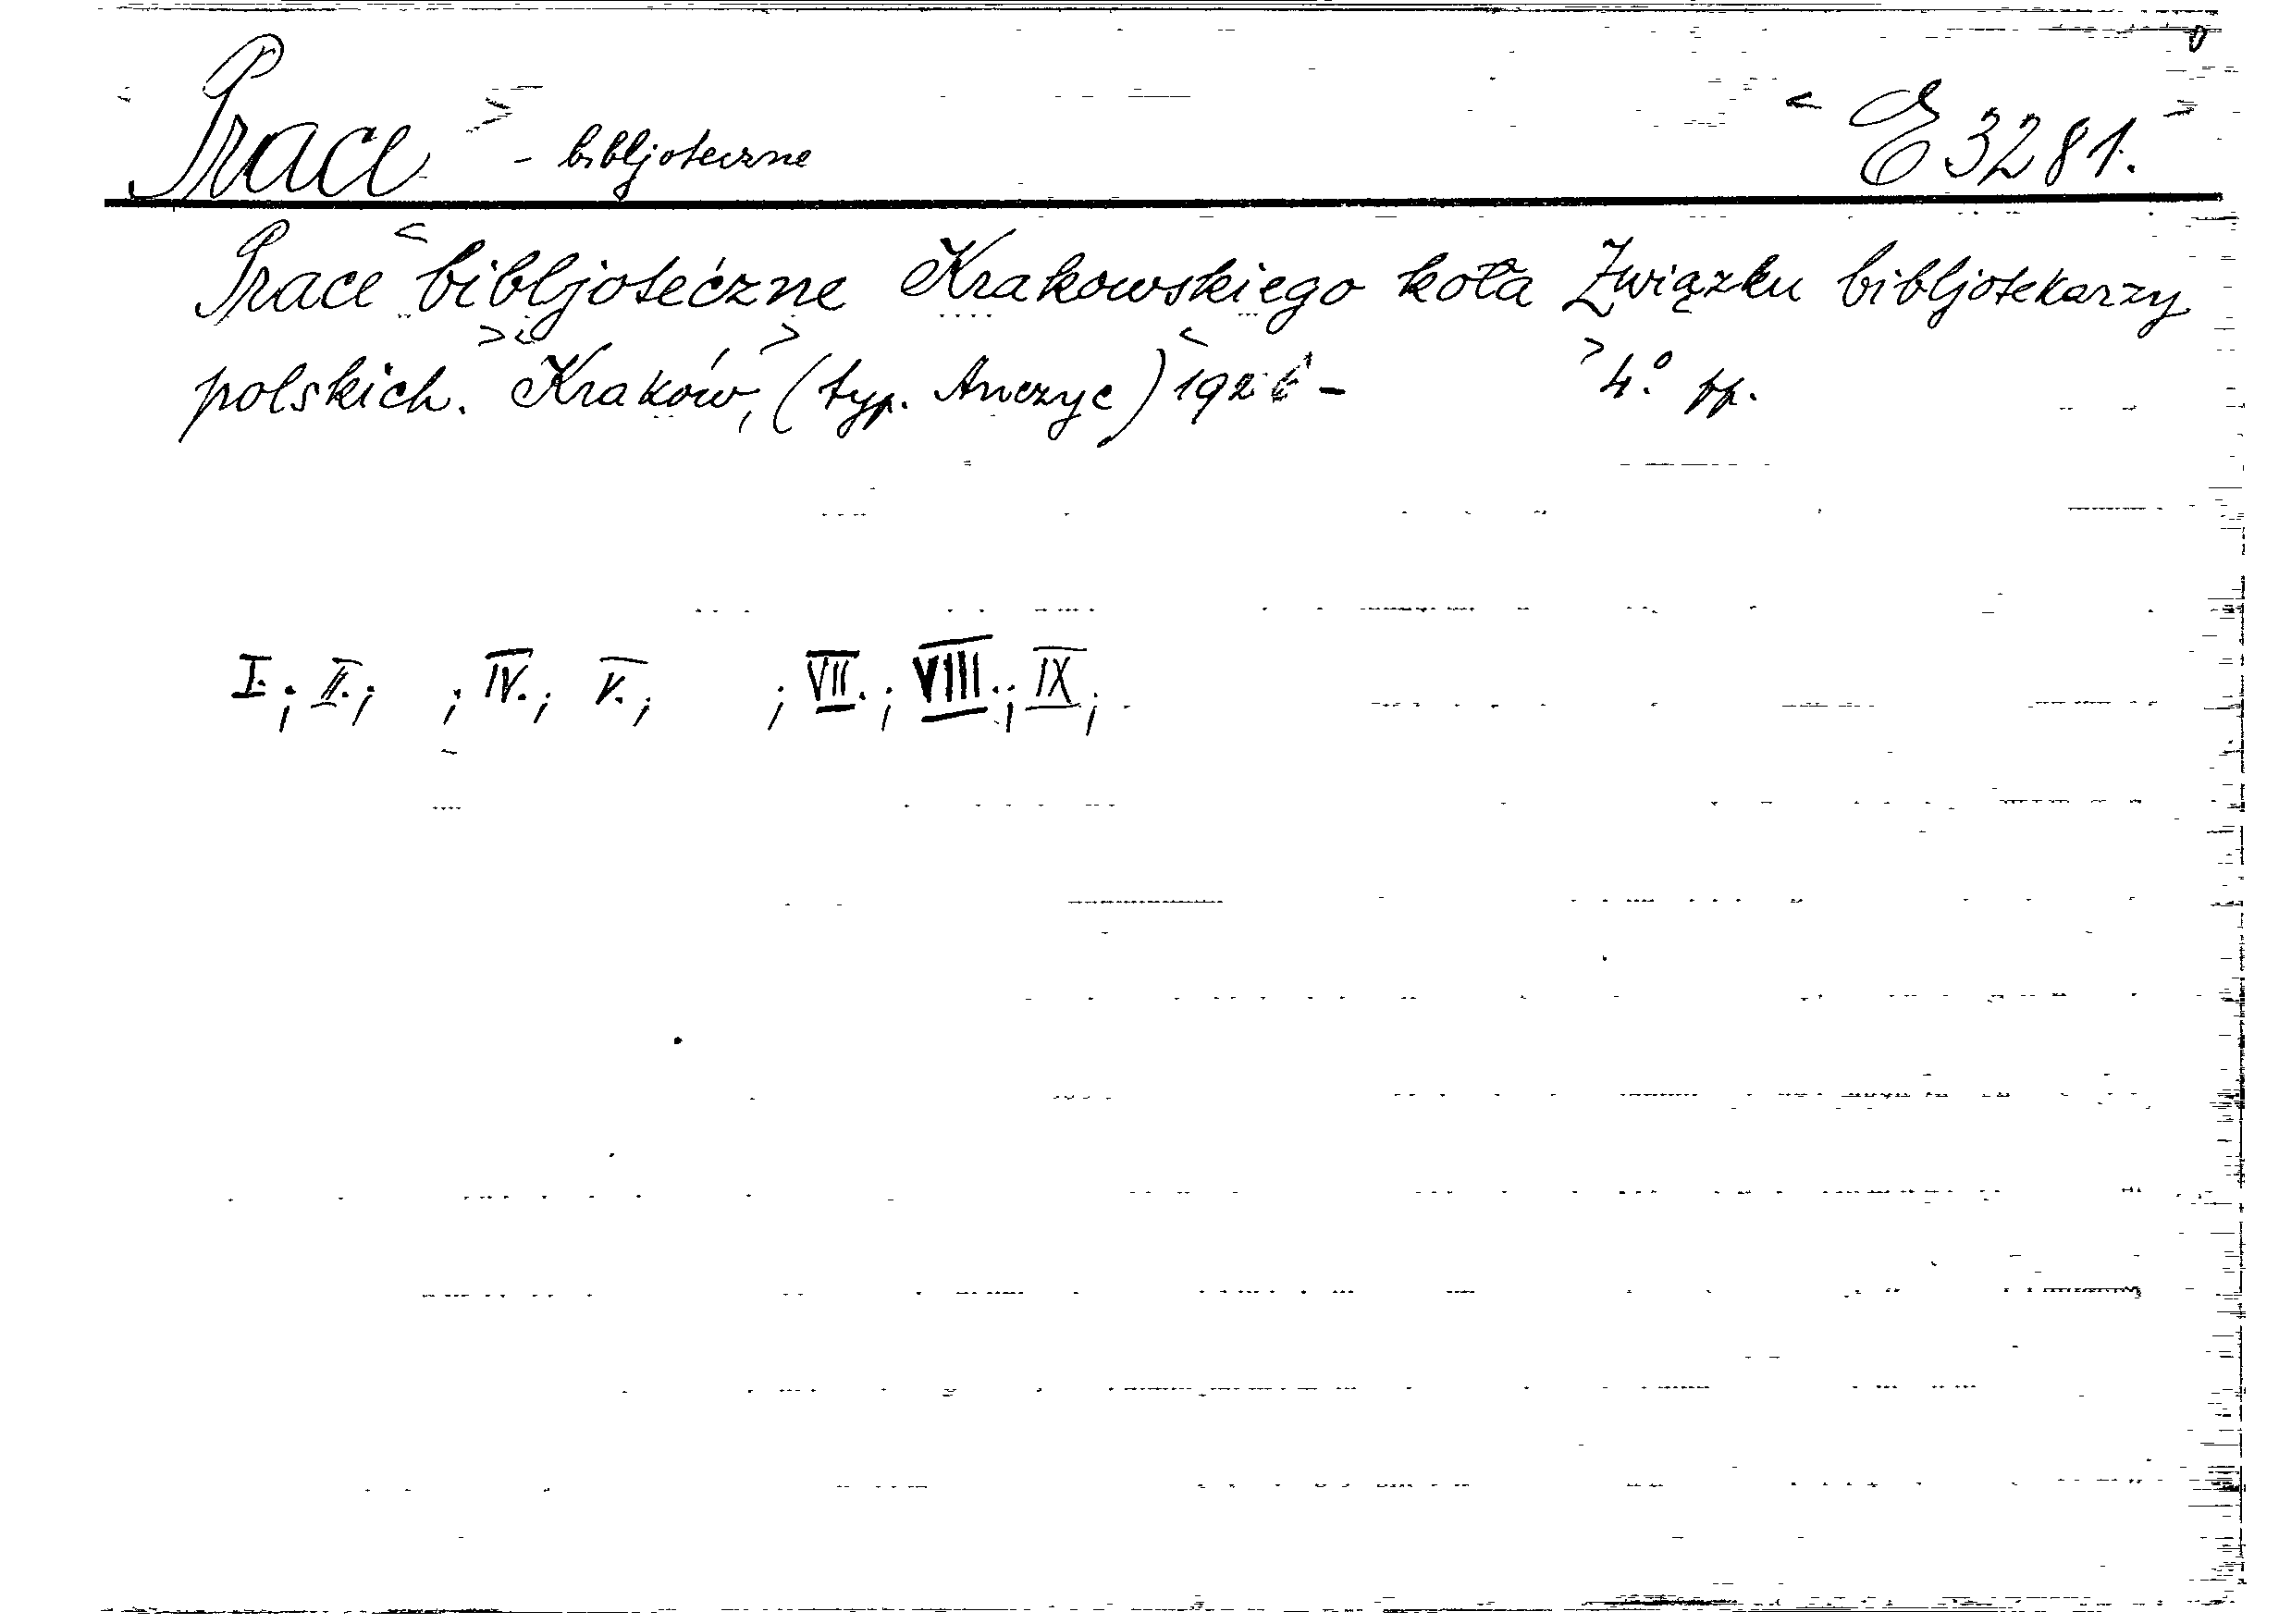 Prace - bibljoteczne E 3281.
Prace bibljoteczne Krakowskiego koła Związku bibljotekarzy
polskich. Kraków, (typ. Anczyc) 192 - 4.° pp.
I.; II.; ; IV.; V.; ; VII.; VIII.; IX;